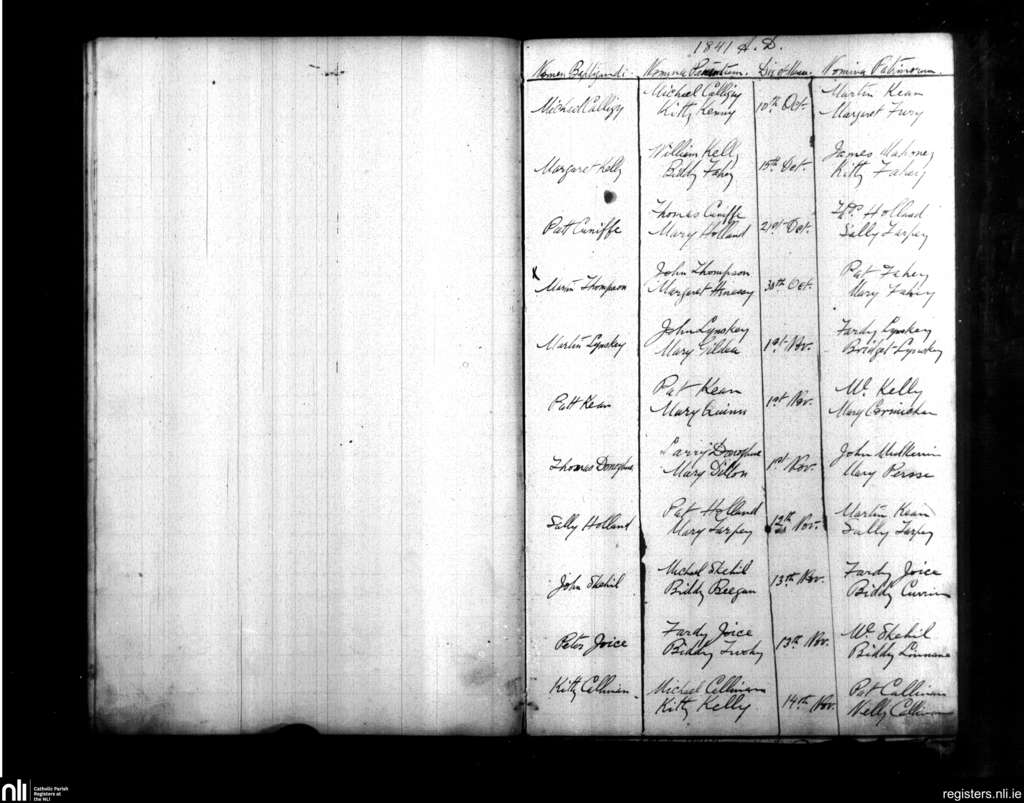 1841 A.D.
Nomen Baptizandi. Nomina Parentum. Die of Mon. Nomina Patrinorum.
Michael Calligy Michael Calligy 10th Oct. Martin Kean
Kitty Kenny Margaret Fury
Margaret Kelly William Kelly 15th Oct. James Mahoney
Biddy Fahey Kitty Fahey
Patt Cuniffe Thomas Cuniffe 21st Oct. Holland
Mary Holland Sally Tarpey
x Thompson John Thompson 30th Oct. Pat Fahey
Margaret Mary Fahey
Martin Lynskey John Lynskey 1st Nov. Fardy Lynskey
Mary Gildea Bridget Lynskey
Patt Kean Pat Kean 1st Nov. Wm. Kelly
Mary Quinn Mary
Thomas Donoghue Larry Donoghue 1st Nov. John Mulkerrin
Mary Dillon Mary Persse
Sally Holland Pat Holland 12th Nov. Martin Kean
Mary Tarpey Sally Tarpey
John Skehil Michael Skehil 13th Nov. Fardy Joice
Biddy Reegan Biddy
Peter Joice Fardy Joice 13th Nov. Wm. Skehil
Biddy Biddy Linnane
Kitty Callinan Michael Callinan 14th Nov. Pat Callinan
Kitty Kelly Nelly Callinan
nli Catholic Parish
Registers at
the NLI
registers.nli.ie